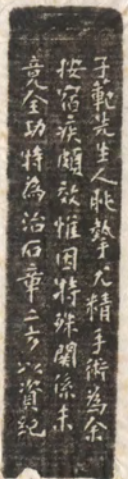 子範先生人尤精手術為余
按宿疾頗效惟因特殊關係未
竟全功特為治石章二方以資紀